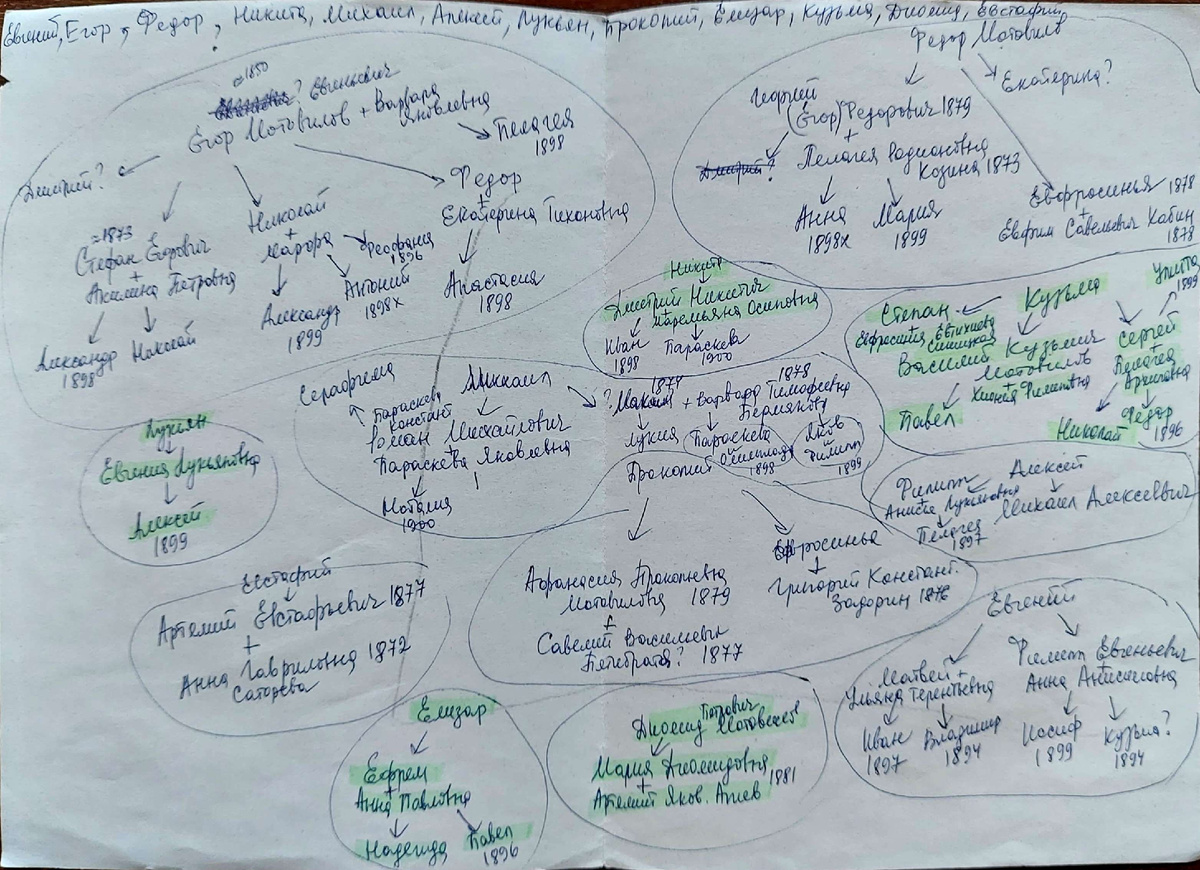 Евгений, Егор, Федор, Никита, Михаил, Алексей, Лукьян, Прокопий, Елизар, Кузьма, Диомид, Евстафий
≈1850
? Евгеньевич
Егор Мотовилов + Варвара Яковлевна
Пелагея
1898
Дмитрий?
≈1873
Стефан Егорович
+
Акилина Петровна
Александр
1898
Николай
Николай
+
Мавра
Феофания
1896
Александр
1899
Антоний
1898х
Федор
+
Екатерина Тихоновна
Анастасия
1898
Федор Мотовилов
Екатерина?
Георгий
(Егор) Федорович 1879
+
Дмитрий?
Пелагея Родионовна
Козина 1873
Анна
1898х
Мария
1899
Евфросинья 1878
+
Евфрим Савельевич Хабин
1878
Никита
Дмитрий Никитич
+
Маремьяна Осиповна
Иван
1898
Параскева
1900
Кузьма
Степан
Ефросиния Евтихиева
Василий Кузьмич
Мотовилов
+
Хиония Филиповна
Павел
Улита
1899
Сергей
+
Пелагея
Архиповна
Николай
Федор
1896
Лукьян
Евгения Лукьяновна
Алексей
1899
Серафима
Михаил
Параскева
Констант
Роман Михайлович
+
Параскева Яковлевна
Наталия
1900
1874
1878
? Макам + Варвара Тимофеевна
Пермякова
Лукия
Параскева
1898
Яков
Филипп
1899
Прокопий
Афанасия Прокопьевна
Мотовилова 1879
+
Савелий Васильевич
1877
Ефросинья
Григорий Констант.
Задорин 1876
Алексей
Филипп
Анисия Лукьяновна
Пелагея
1897
Михаил Алексеевич
Евстафий
Артемий Евстафьевич 1877
+
Анна Гавриловна 1872
Евгений
Матвей +
Ульяна Терентьевна
Иван
1897
Владимир
1894
Филипп Евгеньевич
+
Анна Анисимовна
Иосиф
1899
Кузьма?
1894
Елизар
Ефрем
+
Анна Павловна
Надежда
Павел
1896
Петрович
Диомид Мотовилов
Мария Диомидовна
+
1881
Артемий Яков.